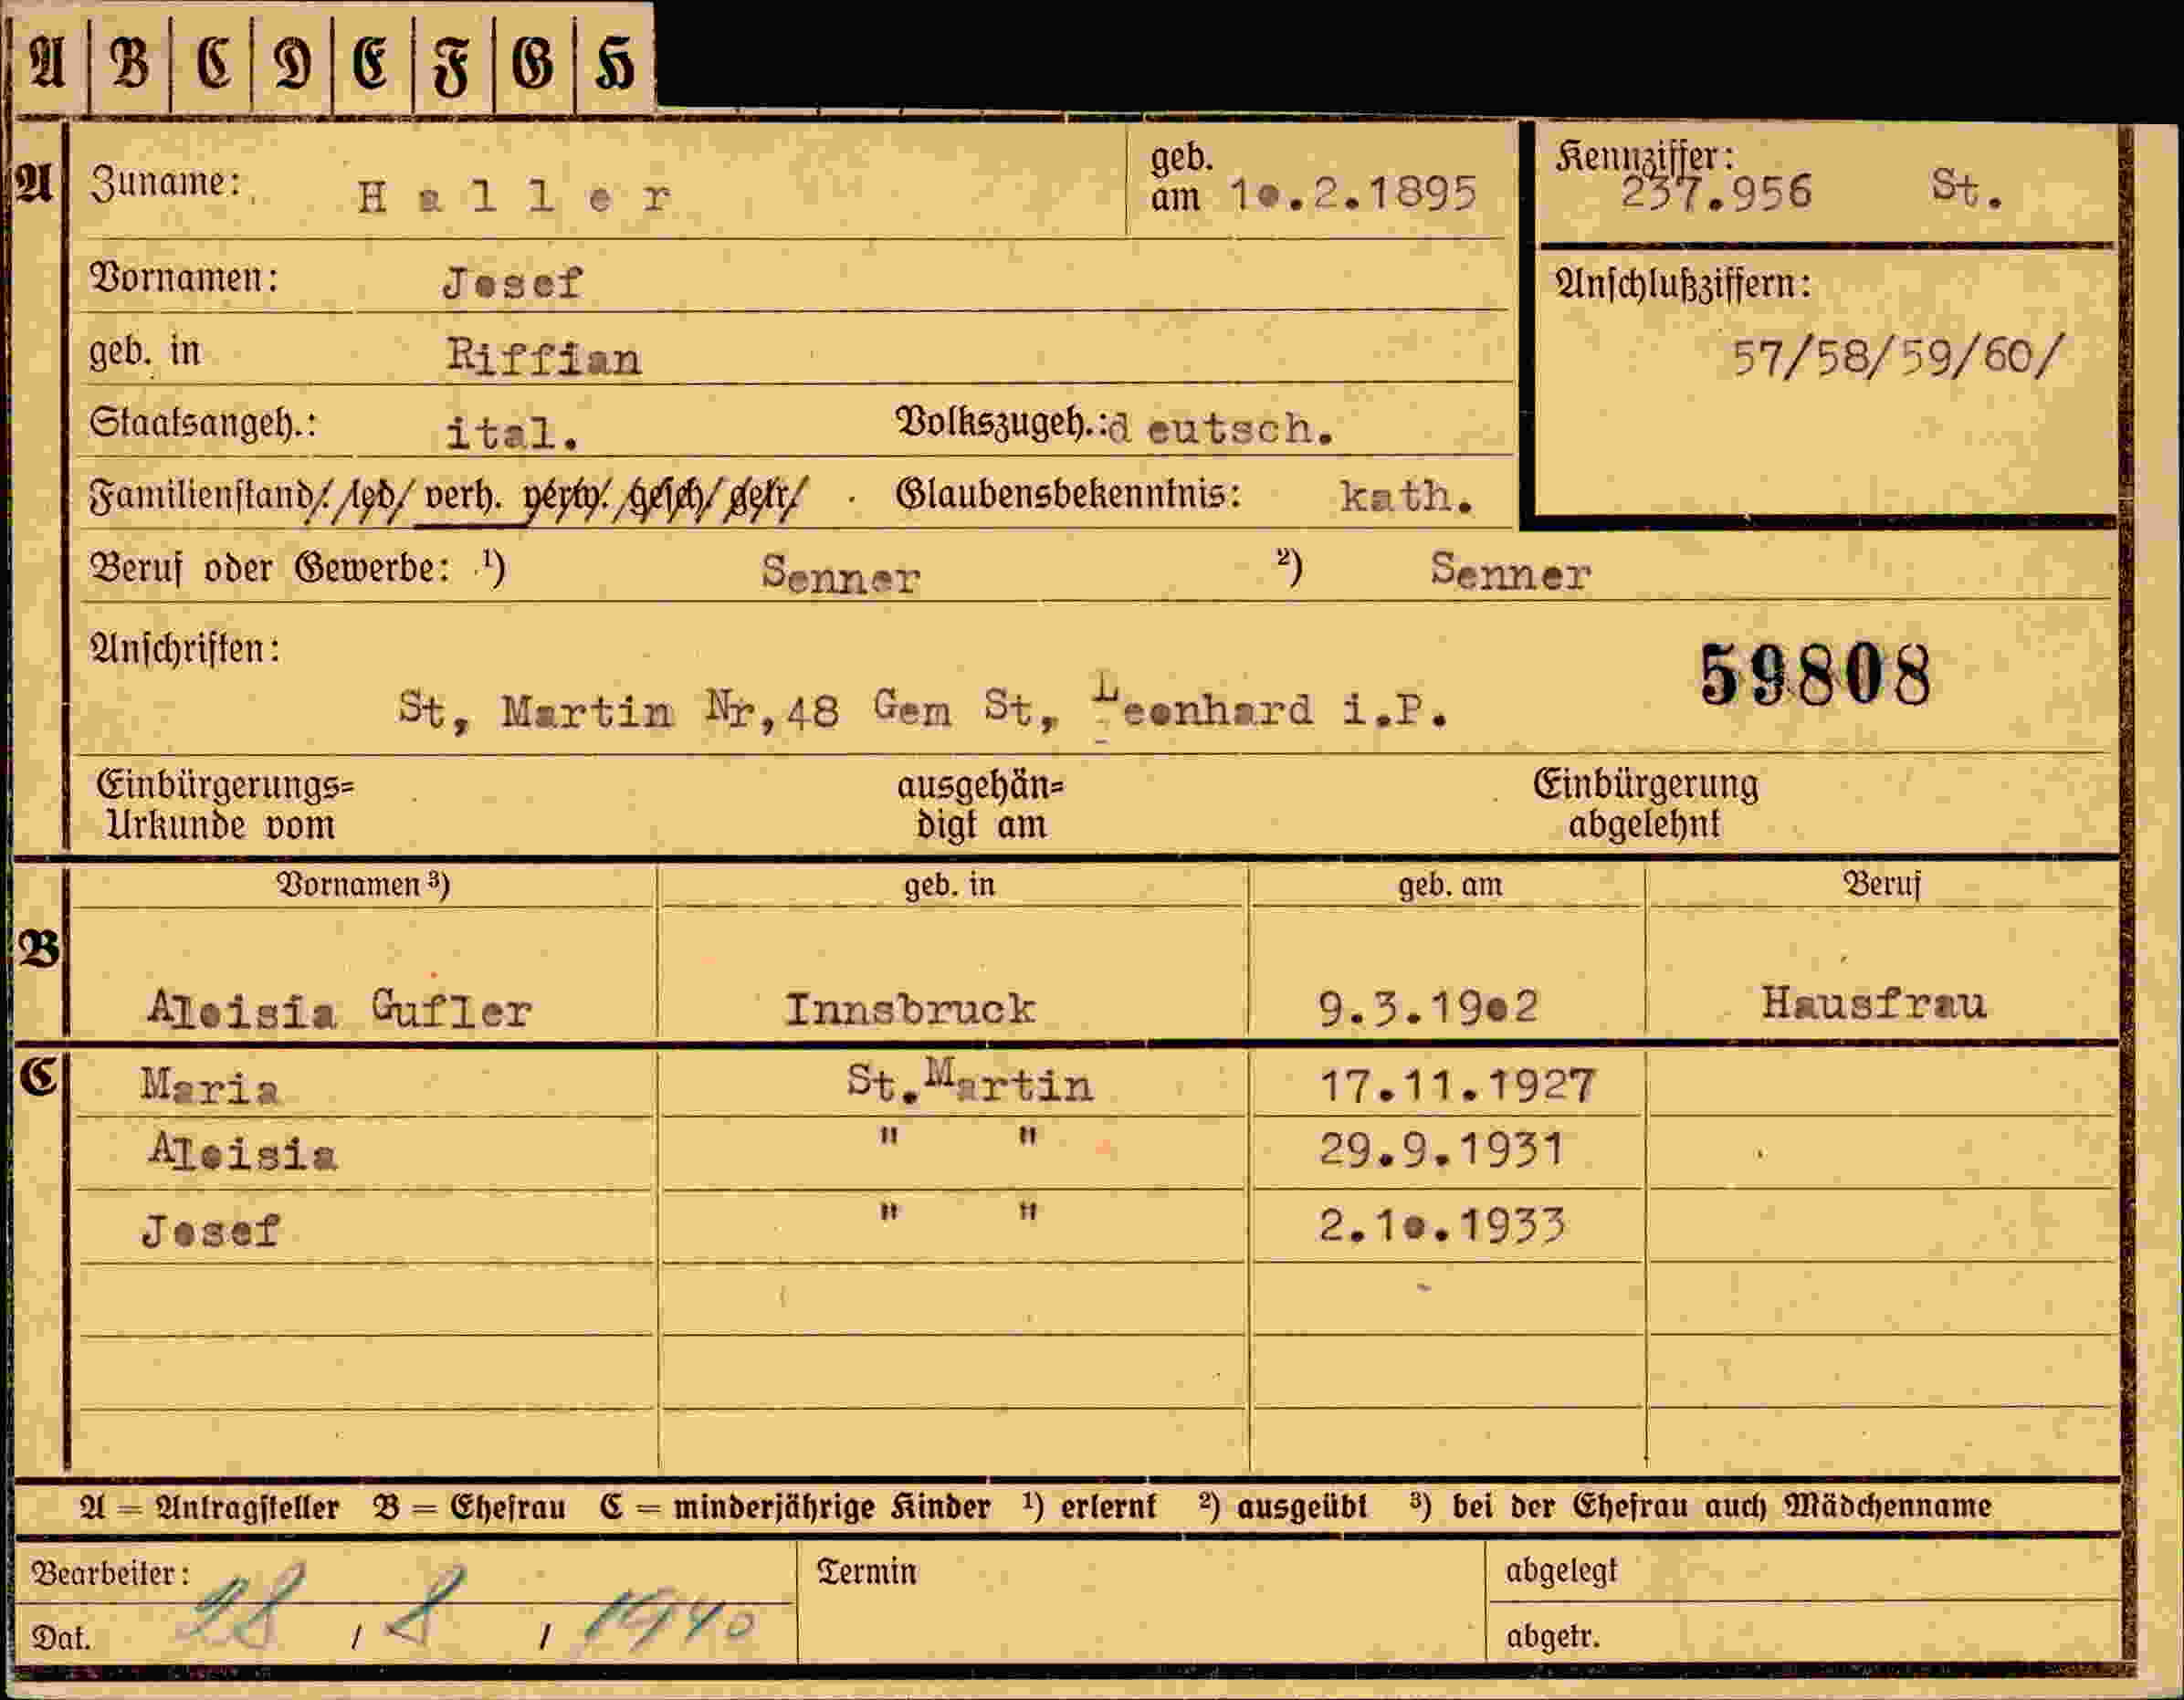 A B C D E F G H
A Zuname: Haller geb. am 10.2.1895 Kennziffer: 237.956 St.
Vornamen: Josef Anschlußziffern:
geb. in Riffian 57/58/59/60/
Staatsangeh.: ital. Volkszugeh.: deutsch.
Familienstand: led. verh. verw. gesch. getr. Glaubensbekenntnis: kath.
Beruf oder Gewerbe: ¹) Senner ²) Senner
Anschriften: 59808
St, Martin Nr,48 Gem St, Leonhard i.P.
Einbürgerungs= ausgehän= Einbürgerung
Urkunde vom digt am abgelehnt
Vornamen ³) geb. in geb. am Beruf
B
Aloisia Gufler Innsbruck 9.3.1902 Hausfrau
C Maria St.Martin 17.11.1927
Aloisia " " 29.9.1931
Josef " " 2.10.1933
A = Antragsteller B = Ehefrau C = minderjährige Kinder ¹) erlernt ²) ausgeübt ³) bei der Ehefrau auch Mädchenname
Bearbeiter: Termin abgelegt
Dat. 28 / 8 / 1940 abgetr.